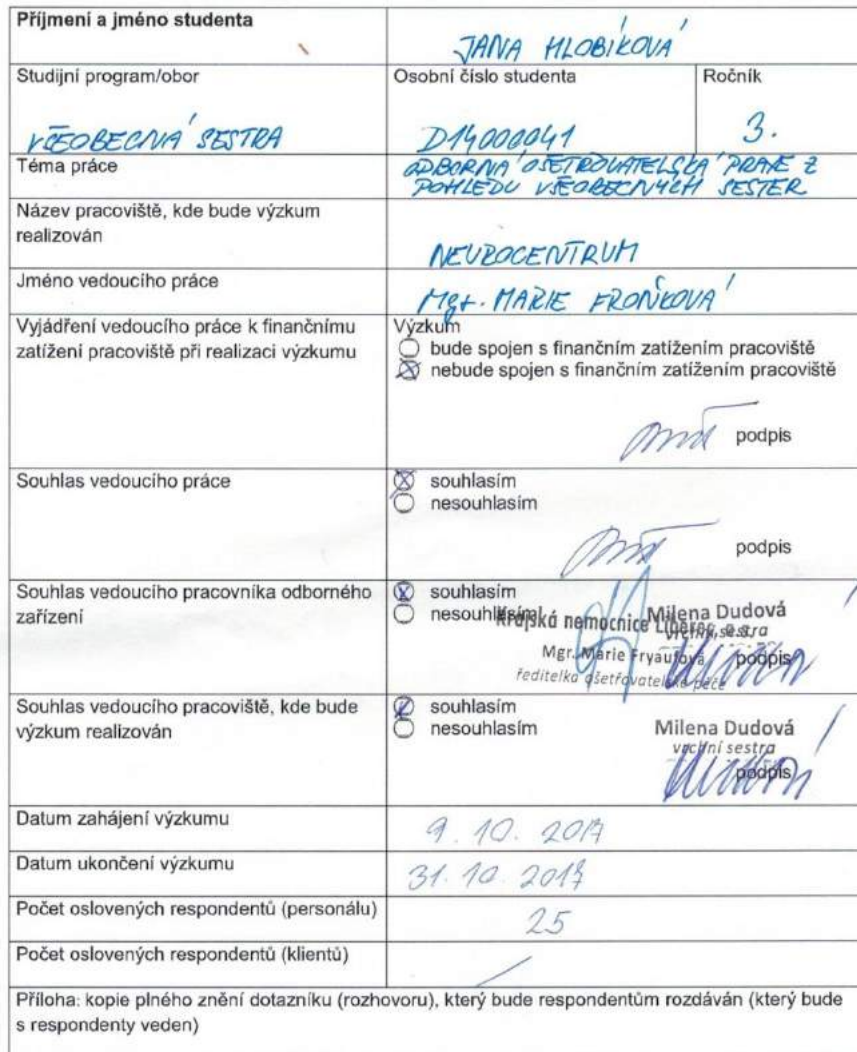 Příjmení a jméno studenta
JANA HLOBÍKOVÁ
Studijní program/obor
VŠEOBECNÁ SESTRA
Osobní číslo studenta
D14000041
Ročník
3.
Téma práce
ODBORNÁ OŠETŘOVATELSKÁ PRAXE Z
POHLEDU VŠEOBECNÝCH SESTER
Název pracoviště, kde bude výzkum
realizován
NEUROCENTRUM
Jméno vedoucího práce
Mgr. MARIE FROŇKOVÁ
Vyjádření vedoucího práce k finančnímu
zatížení pracoviště při realizaci výzkumu
Výzkum
bude spojen s finančním zatížením pracoviště
nebude spojen s finančním zatížením pracoviště
podpis
Souhlas vedoucího práce
souhlasím
nesouhlasím
podpis
Souhlas vedoucího pracovníka odborného
zařízení
souhlasím
nesouhlasím
Krajská nemocnice Liberec, a.s.
Milena Dudová
vrchní sestra
Mgr. Marie Fryaufová
podpis
ředitelka ošetřovatelské péče
Souhlas vedoucí pracoviště, kde bude
výzkum realizován
souhlasím
nesouhlasím
Milena Dudová
vrchní sestra
podpis
Datum zahájení výzkumu
9. 10. 2017
Datum ukončení výzkumu
31. 10. 2017
Počet oslovených respondentů (personálu)
25
Počet oslovených respondentů (klientů)
Příloha: kopie plného znění dotazníku (rozhovoru), který bude respondentům rozdáván (který bude
s respondenty veden)